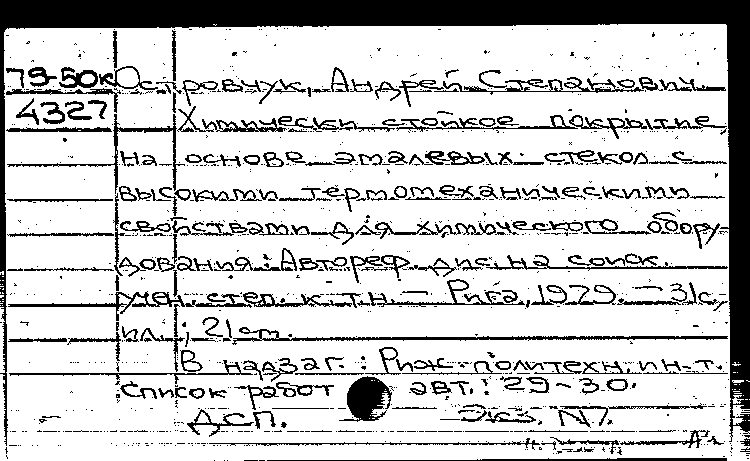 79-50к Островчук, Андрей Степанович.
4327 Химически стойкое покрытие
на основе эмалевых стекол с
высокими термомеханическими
свойствами для химического обору-
дования : Автореф. дис. на соиск.
учен. степ. к. т.н. — Рига, 1979. — 31с,
ил. ; 21см.
В надзаг. : Риж. политехн. ин-т.
Список работ авт. : 29-30.
ДСП. Экз. N7.